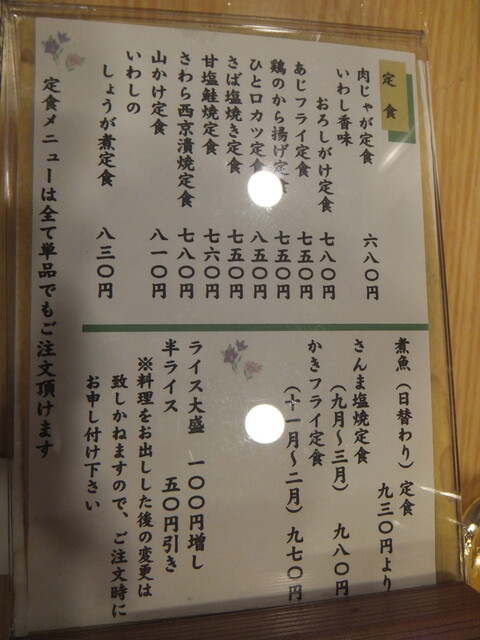 定食
肉じゃが定食 六八〇円
いわし香味
おろしがけ定食 七八〇円
あじフライ定食 七五〇円
鶏のから揚げ定食 七五〇円
ひと口カツ定食 八五〇円
さば塩焼き定食 七五〇円
甘塩鮭焼定食 七六〇円
さわら西京漬焼定食 七八〇円
山かけ定食 八一〇円
いわしの
しょうが煮定食 八三〇円
煮魚（日替わり）定食
九三〇円より
さんま塩焼定食
（九月〜三月） 九八〇円
かきフライ定食
（十一月〜二月） 九七〇円
ライス大盛 一〇〇円増し
半ライス 五〇円引き
※料理をお出しした後の変更は
致しかねますので、ご注文時に
お申し付け下さい
定食メニューは全て単品でもご注文頂けます